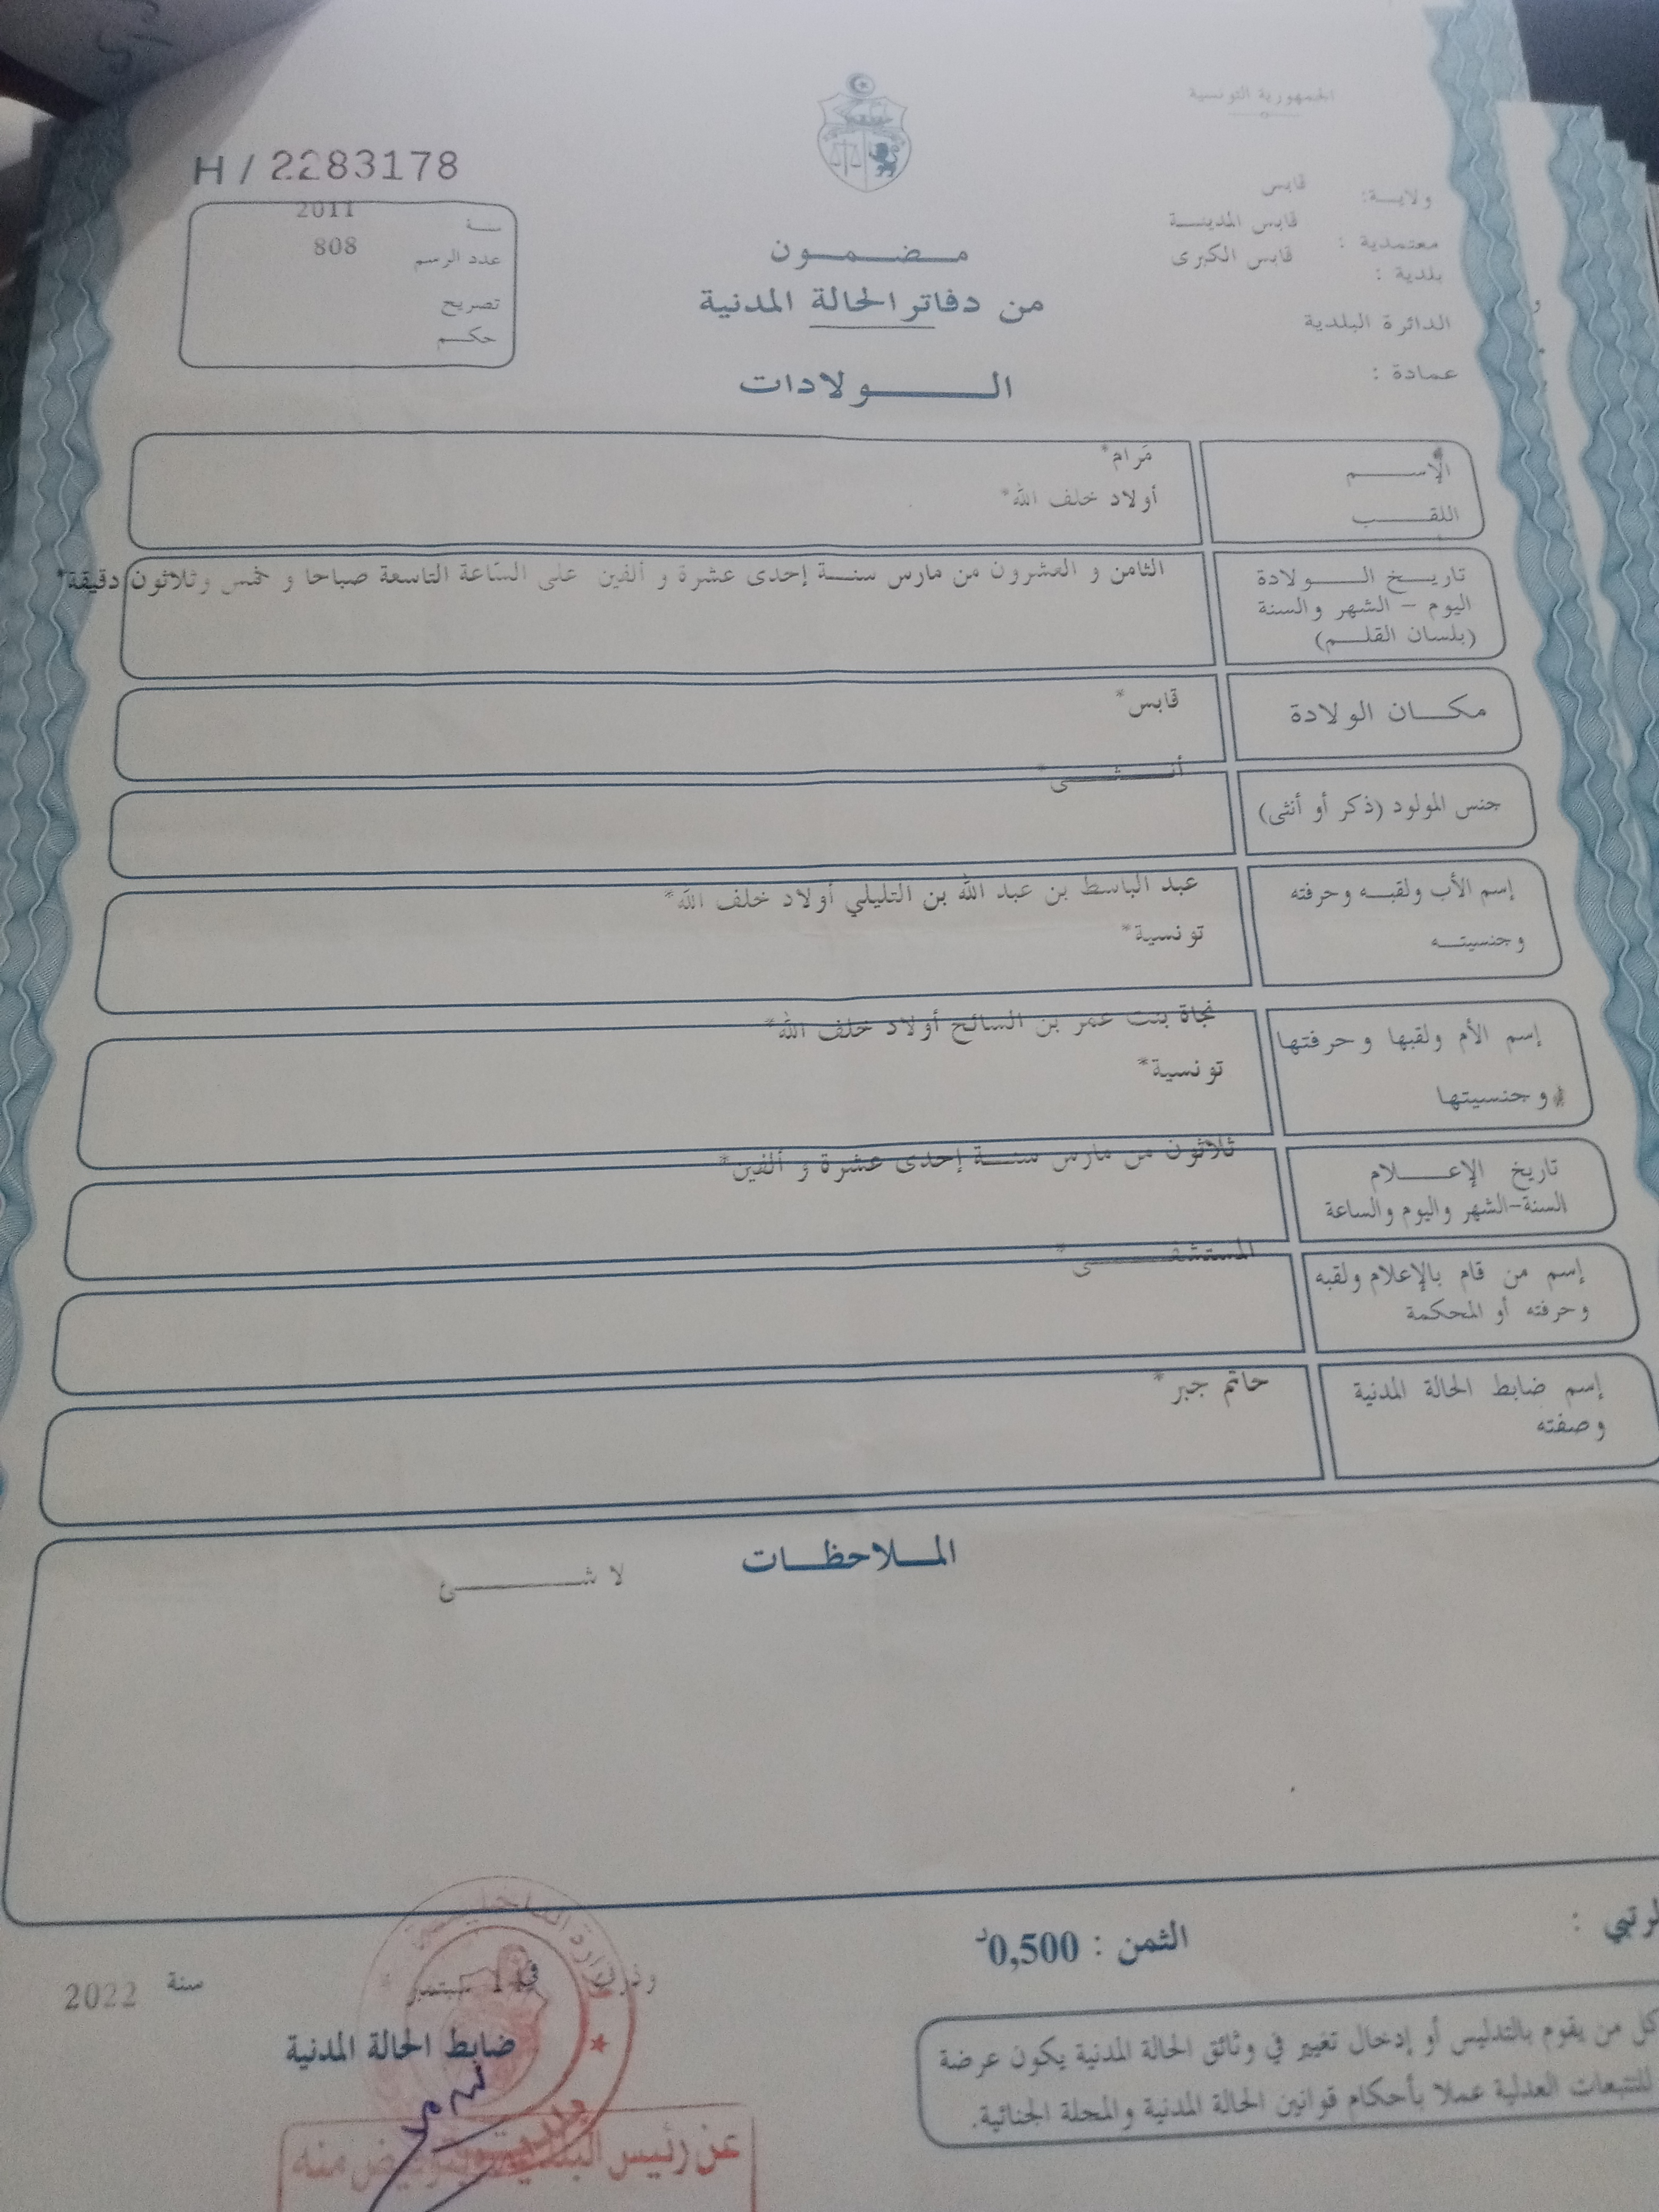 الجمهورية التونسية
ولاية: قابس
معتمدية : قابس المدينة
بلدية : قابس الكبرى
الدائرة البلدية
عمادة :
H / 2283178
سنة 2011
عدد الرسم 808
تصريح
حكم
مضمون
من دفاتر الحالة المدنية
الولادات
الإسم مَرام*
اللقب أولاد خلف الله*
تاريخ الولادة الثامن و العشرون من مارس سنة إحدى عشرة و ألفين على السّاعة التاسعة صباحا و خمس وثلاثون دقيقة*
اليوم - الشهر والسنة
(بلسان القلم)
مكان الولادة قابس*
جنس المولود (ذكر أو أنثى) أنثى*
إسم الأب ولقبه وحرفته عبد الباسط بن عبد الله بن التليلي أولاد خلف الله*
وجنسيته تونسية*
إسم الأم ولقبها وحرفتها نجاة بنت عمر بن السائح أولاد خلف الله*
وجنسيتها تونسية*
تاريخ الإعلام ثلاثون من مارس سنة إحدى عشرة و ألفين*
السنة-الشهر واليوم والساعة
إسم من قام بالإعلام ولقبه المستشفى*
وحرفته أو المحكمة
إسم ضابط الحالة المدنية حاتم جبر*
وصفته
الملاحظات
لا شئ
الثمن : 0,500د
في 14 سبتمبر سنة 2022
ضابط الحالة المدنية
كل من يقوم بالتدليس أو إدخال تغيير في وثائق الحالة المدنية يكون عرضة
للتتبعات العدلية عملا بأحكام قوانين الحالة المدنية والمجلة الجنائية.
عن رئيس البلدية وبتفويض منه